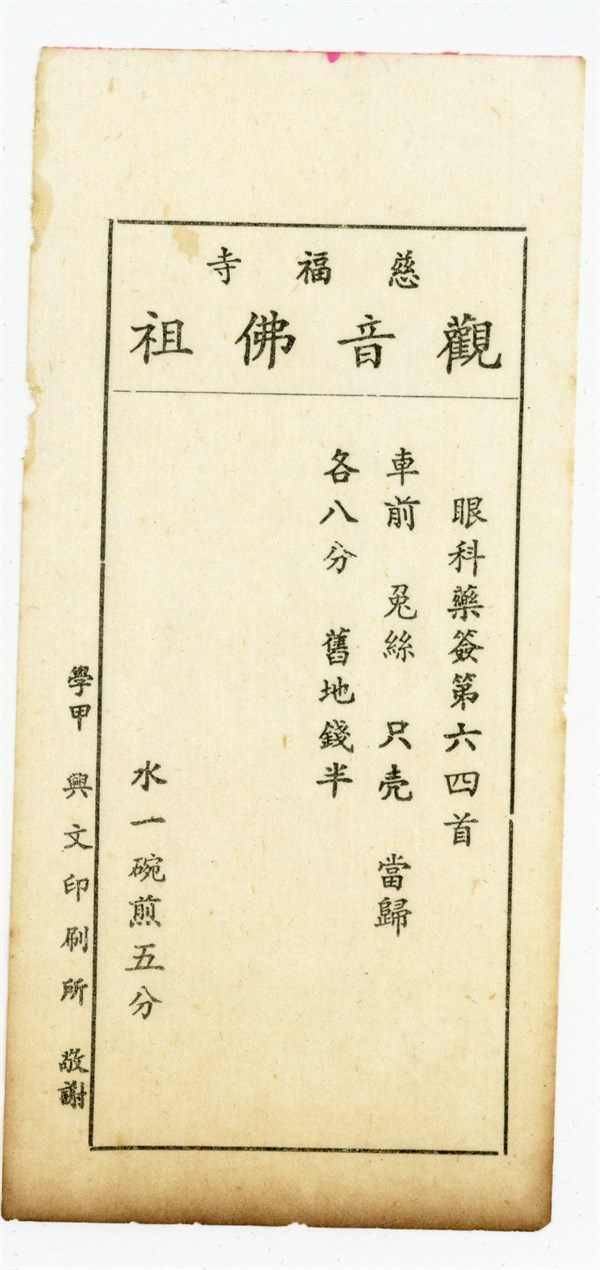 慈福寺
觀音佛祖
眼科藥簽第六四首
車前 兎絲 只壳 當歸
各八分 舊地錢半
水一碗煎五分
學甲 興文印刷所 敬謝